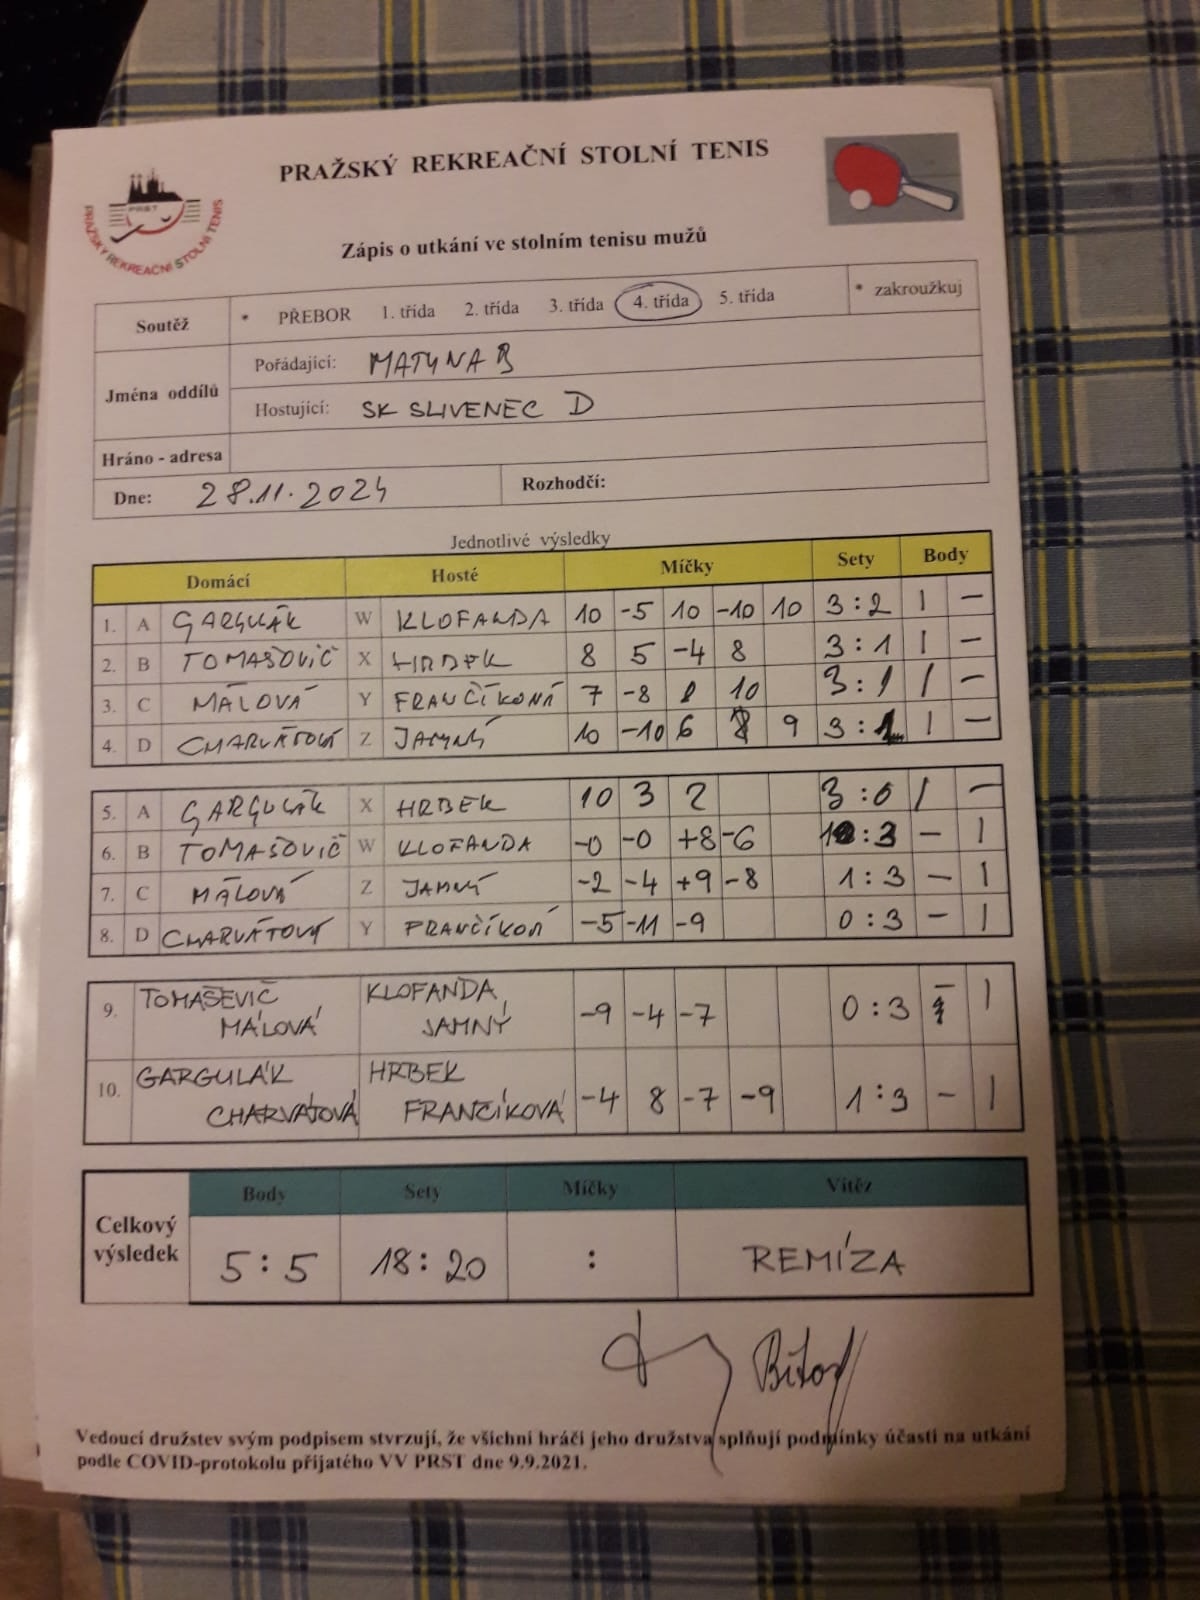 PRAŽSKÝ REKREAČNÍ STOLNÍ TENIS
PRST
PRAŽSKÝ REKREAČNÍ STOLNÍ TENIS
Zápis o utkání ve stolním tenisu mužů
Soutěž * PŘEBOR 1. třída 2. třída 3. třída 4. třída 5. třída * zakroužkuj
Jména oddílů
Pořádající: MATYNA B
Hostující: SK SLIVENEC D
Hráno - adresa
Dne: 28.11.2024 Rozhodčí:
Jednotlivé výsledky
Domácí Hosté Míčky Sety Body
1. A GARGULÁK W KLOFANDA 10 -5 10 -10 10 3:2 1 -
2. B TOMAŠOVIČ X HRBEK 8 5 -4 8 3:1 1 -
3. C MÁLOVÁ Y FRANČÍKOVÁ 7 -8 10 3:1 1 -
4. D CHARVÁTOVÁ Z JAMNÝ 10 -10 6 9 3: 1 -
5. A GARGULÁK X HRBEK 10 3 2 3:0 1 -
6. B TOMAŠOVIČ W KLOFANDA -0 -0 +8 -6 1:3 - 1
7. C MÁLOVÁ Z JAMNÝ -2 -4 +9 -8 1:3 - 1
8. D CHARVÁTOVÁ Y -5 -11 -9 0:3 - 1
9. TOMAŠEVIČ KLOFANDA
MÁLOVÁ JAMNÝ -9 -4 -7 0:3 - 1
10. GARGULÁK HRBEK
CHARVÁTOVÁ FRANČÍKOVÁ -4 8 -7 -9 1:3 - 1
Body Sety Míčky Vítěz
Celkový výsledek 5:5 18:20 : REMÍZA
Vedoucí družstev svým podpisem stvrzují, že všichni hráči jeho družstva splňují podmínky účasti na utkání
podle COVID-protokolu přijatého VV PRST dne 9.9.2021.